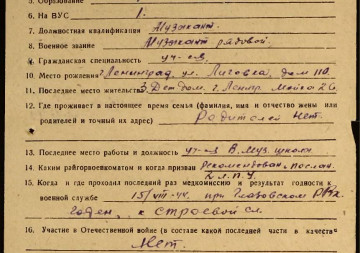 5. Образование
6. На ВУС 1.
7. Должностная квалификация Музыкант
8. Военное звание Музыкант рядовой.
9. Гражданская специальность уч-ся.
10. Место рождения г. Ленинград, ул. Лиговка, дом 110.
11. Последнее место жительства 3 Дет дом. г. Ленигр.
12. Где проживает в настоящее время семья (фамилия, имя и отчество жены или
родителей и точный их адрес) Родителей нет.
13. Последнее место работы и должность уч-ся В. Муз. школа
14. Каким райгорвоенкоматом и когда призван Рекомендован, послан
15. Когда и где проходил последний раз медкомиссию и результат годности к
военной службе 15/VIII-44. при
годен, к строевой сл.
16. Участие в Отечественной войне (в составе какой последней части и в качестве
Нет.